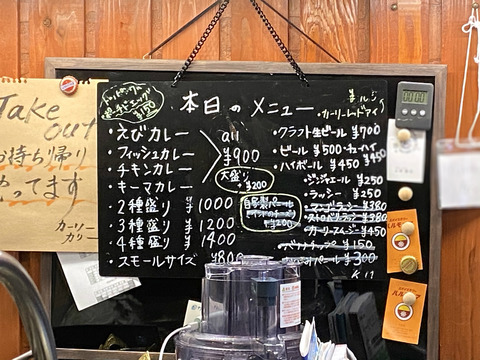 Take
out
お持ち帰り
やってます
カーリー
カリー
トッピングの
ポーチドエッグ
¥150
本日のメニュー
・えびカレー
・フィッシュカレー
・チキンカレー
・キーマカレー
all
¥900
大盛り
+¥200
・2種盛り ¥1000
・3種盛り ¥1200
・4種盛り ¥1400
・スモールサイズ ¥800
自家製パニール
+¥200
・カーリーレッドアイ
・クラフト生ビール ¥700
・ビール ¥500
・チューハイ ¥450
・ハイボール ¥450
・ジンジャエール ¥250
・ラッシー ¥250
・マンゴラッシー ¥380
・ストロベリラッシー ¥380
¥450
¥150
¥300